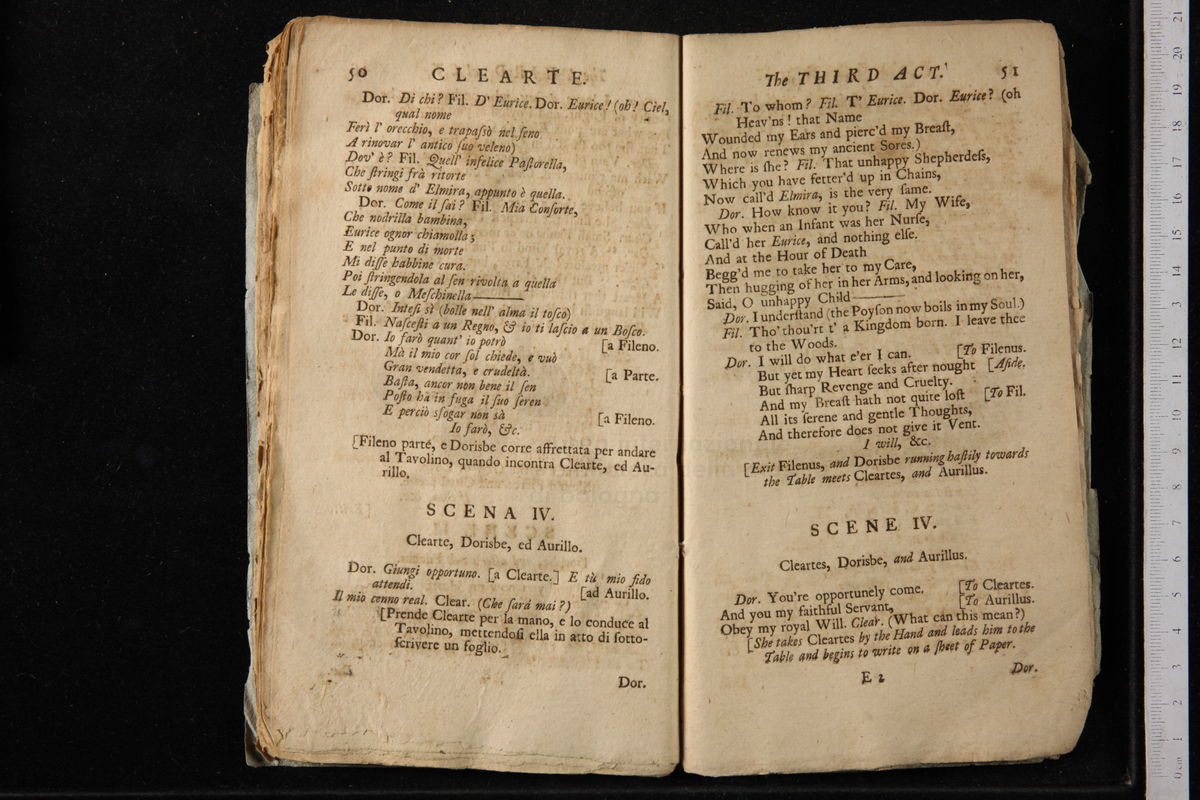 50 CLEARTE.
Dor. Di chi? Fil. D' Eurice. Dor. Eurice! (oh! Ciel,
qual nome
Ferì l' orecchio, e trapaſsò nel ſeno
A rinovar l' antico ſuo veleno)
Dov' è? Fil. Quell' infelice Paſtorella,
Che ſtringi frà ritorte
Sotto nome d' Elmira, appunto è quella.
Dor. Come il ſai? Fil. Mia Conſorte,
Che nodrilla bambina,
Eurice ognor chiamolla;
E nel punto di morte
Mi diſſe habbine cura.
Poi ſtringendola al ſen rivolta a quella
Le diſſe, o Meſchinella———
Dor. Inteſi sì (bolle nell' alma il toſco)
Fil. Naſceſti a un Regno, & io ti laſcio a un Boſco.
Dor. Io farò quant' io potrò [a Fileno.
Mà il mio cor ſol chiede, e vuò
Gran vendetta, e crudeltà. [a Parte.
Baſta, ancor non bene il ſen
Poſto hà in fuga il ſuo ſeren
E perciò sfogar non sà [a Fileno.
Io farò, &c.
[Fileno parte, e Dorisbe corre affrettata per andare
al Tavolino, quando incontra Clearte, ed Au-
rillo.
SCENA IV.
Clearte, Dorisbe, ed Aurillo.
Dor. Giungi opportuno. [a Clearte.] E tù mio fido
attendi. [ad Aurillo.
Il mio cenno real. Clear. (Che ſarà mai?)
[Prende Clearte per la mano, e lo conduce al
Tavolino, mettendoſi ella in atto di ſotto-
ſcrivere un foglio.
Dor.
The THIRD ACT. 51
Fil. To whom? Fil. T' Eurice. Dor. Eurice? (oh
Heav'ns! that Name
Wounded my Ears and pierc'd my Breaſt,
And now renews my ancient Sores.)
Where is ſhe? Fil. That unhappy Shepherdeſs,
Which you have fetter'd up in Chains,
Now call'd Elmira, is the very ſame.
Dor. How know it you? Fil. My Wife,
Who when an Infant was her Nurſe,
Call'd her Eurice, and nothing elſe.
And at the Hour of Death
Begg'd me to take her to my Care,
Then hugging of her in her Arms, and looking on her,
Said, O unhappy Child———
Dor. I underſtand (the Poyſon now boils in my Soul.)
Fil. Tho' thou'rt t' a Kingdom born. I leave thee
to the Woods.
Dor. I will do what e'er I can. [To Filenus.
But yet my Heart ſeeks after nought [Aſide.
But ſharp Revenge and Cruelty.
And my Breaſt hath not quite loſt [To Fil.
All its ſerene and gentle Thoughts,
And therefore does not give it Vent.
I will, &c.
[Exit Filenus, and Dorisbe running haſtily towards
the Table meets Cleartes, and Aurillus.
SCENE IV.
Cleartes, Dorisbe, and Aurillus.
Dor. You're opportunely come. [To Cleartes.
And you my faithful Servant, [To Aurillus.
Obey my royal Will. Clear. (What can this mean?)
[She takes Cleartes by the Hand and leads him to the
Table and begins to write on a ſheet of Paper.
E 2 Dor.